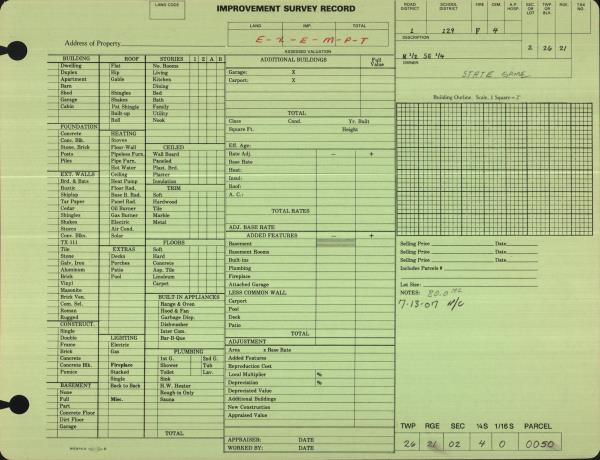 LAND CODE
IMPROVEMENT SURVEY RECORD
LAND IMP. TOTAL
E-X-E-M-P-T
ASSESSED VALUATION
Address of Property
ROAD DISTRICT SCHOOL DISTRICT FIRE CEM. A.P. HOSP. SEC. OR LOT TWP OR BLK. RGE. TAX
1 129 F 4
DESCRIPTION
2 26 21
N 1/2 SE 1/4
OWNER
STATE GAME
BUILDING ROOF STORIES 1 2 A B
Dwelling Flat No. Rooms
Duplex Hip Living
Apartment Gable Kitchen
Barn Dining
Shed Shingles Bed
Garage Shakes Bath
Cabin Pat Shingle Family
Built-up Utility
Roll Nook
FOUNDATION
Concrete HEATING
Conc. Blk. Stoves CEILED
Stone, Brick Floor-Wall Wall Board
Posts Pipeless Furn. Paneled
Piles Pipe Furn. Plast. Brd.
Hot Water Plaster
EXT. WALLS Ceiling Insulation
Brd. & Bats Heat Pump TRIM
Rustic Floor Rad. Soft
Shiplap Base B. Rad. Hardwood
Tar Paper Panel Rad. Tile
Cedar Oil Burner Marble
Shingles Gas Burner Metal
Shakes Electric
Stucco Air Cond.
Conv. Blks. Solar
TX-111 FLOORS
Tile EXTRAS Soft
Stone Decks Hard
Galv. Iron Porches Concrete
Aluminum Patio Asp. Tile
Brick Pool Linoleum
Vinyl Carpet
Masonite
Brick Ven. BUILT-IN APPLIANCES
Com. Sel. Range & Oven
Roman Hood & Fan
Rugged Garbage Disp.
CONSTRUCT. Dishwasher
Single Inter Com.
Double LIGHTING Bar-B-Que
Frame Electric
Brick Gas PLUMBING
Concrete 1st G. 2nd G.
Concrete Blk. Fireplace Shower Tub
Pumice Stacked Toilet Lav.
Single Sink
BASEMENT Back to Back H.W. Heater
None Rough-in Only
Full Misc. Sauna
Part
Concrete Floor
Dirt Floor
Garage TOTAL
ADDITIONAL BUILDINGS Full Value
Garage: X
Carport: X
TOTAL
Class Cond. Yr. Built
Square Ft. Height
Eff. Age:
Rate Adj. − +
Base Rate
Heat:
Insul:
Roof:
A. C.:
TOTAL RATES
ADJ. BASE RATE
ADDED FEATURES − +
Basement
Basement Rooms
Built-ins
Plumbing
Fireplace
Attached Garage
LESS COMMON WALL
Carport
Pool
Deck
Patio
TOTAL
ADJUSTMENT
Area x Base Rate
Added Features
Reproduction Cost
Local Multiplier %
Depreciation %
Depreciated Value
Additional Buildings
New Construction
Appraised Value
APPRAISER: DATE
WORKED BY: DATE
Building Outline Scale, 1 Square = 2'
Selling Price Date
Selling Price Date
Selling Price Date
Includes Parcels #
Lot Size:
NOTES: 80.0 AC
7-13-07 N/C
TWP RGE SEC ¼S 1/16S PARCEL
26 21 02 4 0 0050